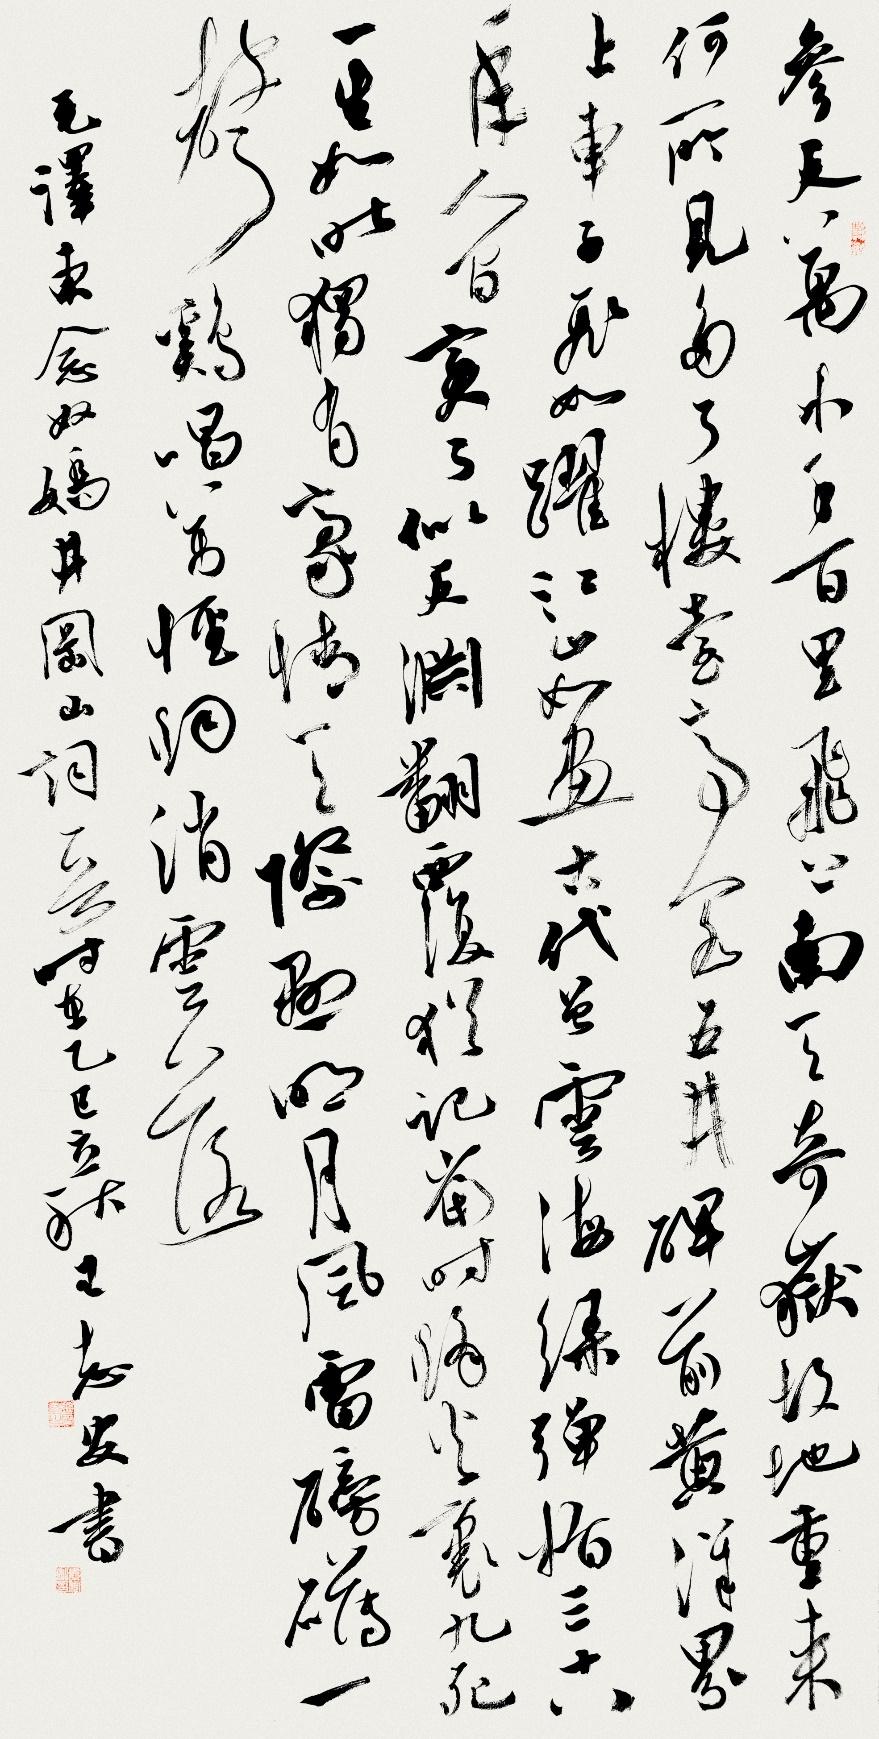 參天萬木千百里飛上南天奇嶽故地重來
何所見多了樓臺亭閣五井碑前黃洋界
上車子飛如躍江山如畫古代曾雲海綠彈指三十八
年人間變了似天淵翻覆猶記當時烽火裏九死
一生如昨獨有豪情天際懸明月風雷磅礴一
聲鷄唱萬怪烟消雲落
毛澤東念奴嬌井岡山詞一首時在乙巳立秋王志安書